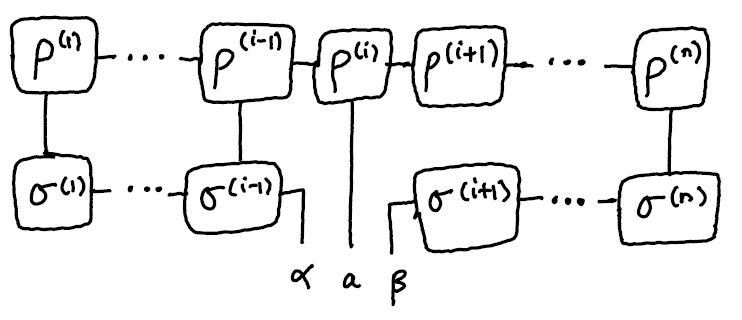 ρ^(1) ... ρ^(i-1) ρ^(i) ρ^(i+1) ... ρ^(n)
σ^(1) ... σ^(i-1) σ^(i+1) ... σ^(n)
α a β